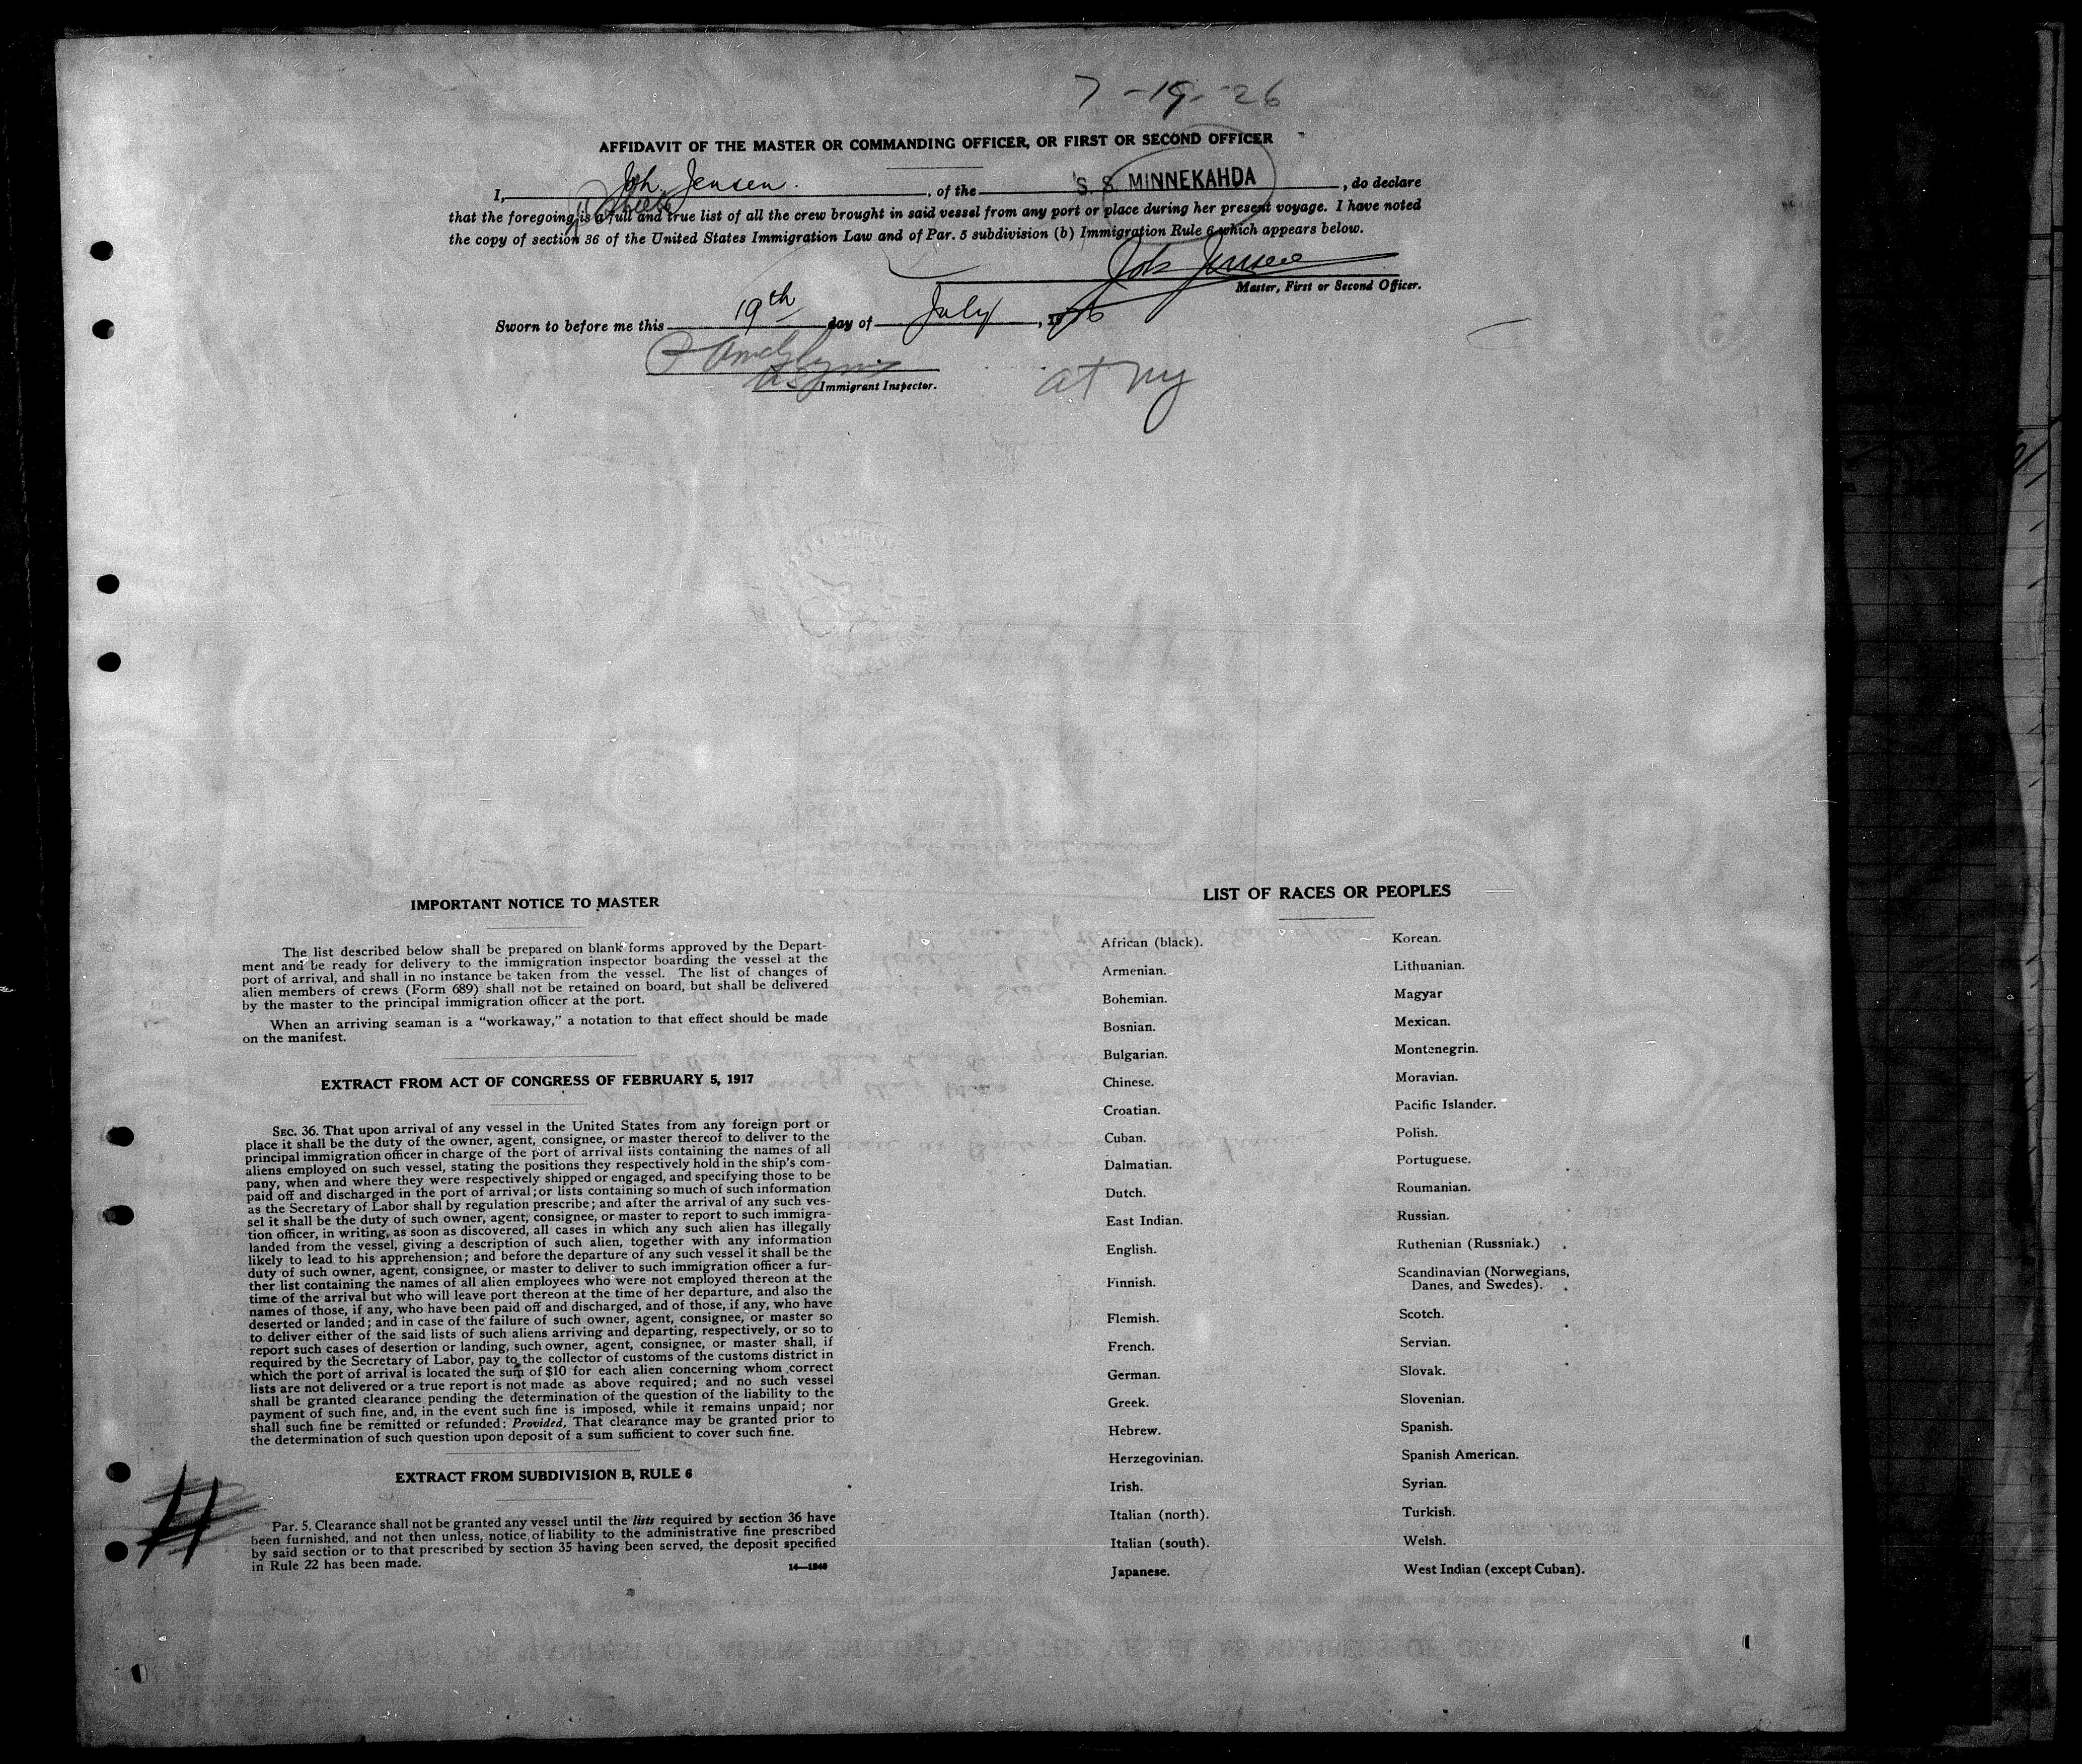 7-19-26
AFFIDAVIT OF THE MASTER OR COMMANDING OFFICER, OR FIRST OR SECOND OFFICER
I, Joh. Jensen. , of the S. S. MINNEKAHDA , do declare
that the foregoing is a full and true list of all the crew brought in said vessel from any port or place during her present voyage. I have noted
the copy of section 36 of the United States Immigration Law and of Par. 5 subdivision (b) Immigration Rule 6 which appears below.
Joh Jensen
Master, First or Second Officer.
Sworn to before me this 19th day of July , 1926
Immigrant Inspector.
at ny
IMPORTANT NOTICE TO MASTER
The list described below shall be prepared on blank forms approved by the Depart-
ment and be ready for delivery to the immigration inspector boarding the vessel at the
port of arrival, and shall in no instance be taken from the vessel. The list of changes of
alien members of crews (Form 689) shall not be retained on board, but shall be delivered
by the master to the principal immigration officer at the port.
When an arriving seaman is a "workaway," a notation to that effect should be made
on the manifest.
EXTRACT FROM ACT OF CONGRESS OF FEBRUARY 5, 1917
SEC. 36. That upon arrival of any vessel in the United States from any foreign port or
place it shall be the duty of the owner, agent, consignee, or master thereof to deliver to the
principal immigration officer in charge of the port of arrival lists containing the names of all
aliens employed on such vessel, stating the positions they respectively hold in the ship's com-
pany, when and where they were respectively shipped or engaged, and specifying those to be
paid off and discharged in the port of arrival; or lists containing so much of such information
as the Secretary of Labor shall by regulation prescribe; and after the arrival of any such ves-
sel it shall be the duty of such owner, agent, consignee, or master to report to such immigra-
tion officer, in writing, as soon as discovered, all cases in which any such alien has illegally
landed from the vessel, giving a description of such alien, together with any information
likely to lead to his apprehension; and before the departure of any such vessel it shall be the
duty of such owner, agent, consignee, or master to deliver to such immigration officer a fur-
ther list containing the names of all alien employees who were not employed thereon at the
time of the arrival but who will leave port thereon at the time of her departure, and also the
names of those, if any, who have been paid off and discharged, and of those, if any, who have
deserted or landed; and in case of the failure of such owner, agent, consignee, or master so
to deliver either of the said lists of such aliens arriving and departing, respectively, or so to
report such cases of desertion or landing, such owner, agent, consignee, or master shall, if
required by the Secretary of Labor, pay to the collector of customs of the customs district in
which the port of arrival is located the sum of $10 for each alien concerning whom correct
lists are not delivered or a true report is not made as above required; and no such vessel
shall be granted clearance pending the determination of the question of the liability to the
payment of such fine, and, in the event such fine is imposed, while it remains unpaid; nor
shall such fine be remitted or refunded: Provided, That clearance may be granted prior to
the determination of such question upon deposit of a sum sufficient to cover such fine.
EXTRACT FROM SUBDIVISION B, RULE 6
Par. 5. Clearance shall not be granted any vessel until the lists required by section 36 have
been furnished, and not then unless, notice of liability to the administrative fine prescribed
by said section or to that prescribed by section 35 having been served, the deposit specified
in Rule 22 has been made.
LIST OF RACES OR PEOPLES
African (black).
Armenian.
Bohemian.
Bosnian.
Bulgarian.
Chinese.
Croatian.
Cuban.
Dalmatian.
Dutch.
East Indian.
English.
Finnish.
Flemish.
French.
German.
Greek.
Hebrew.
Herzegovinian.
Irish.
Italian (north).
Italian (south).
Japanese.
Korean.
Lithuanian.
Magyar
Mexican.
Montenegrin.
Moravian.
Pacific Islander.
Polish.
Portuguese.
Roumanian.
Russian.
Ruthenian (Russniak.)
Scandinavian (Norwegians,
Danes, and Swedes).
Scotch.
Servian.
Slovak.
Slovenian.
Spanish.
Spanish American.
Syrian.
Turkish.
Welsh.
West Indian (except Cuban).